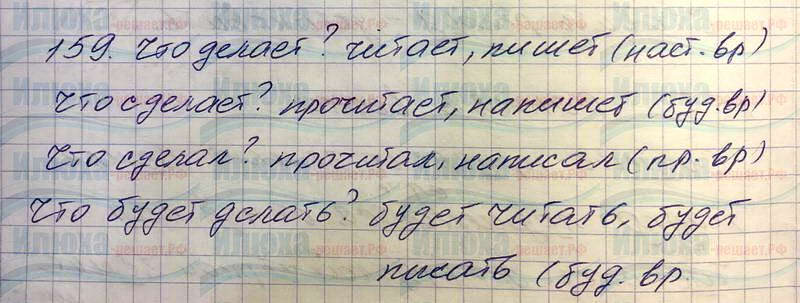 159. Что делает? читает, пишет (наст. вр)
Что сделает? прочитает, напишет (буд. вр)
Что сделал? прочитал, написал (пр. вр)
Что будет делать? будет читать, будет
писать (буд. вр.